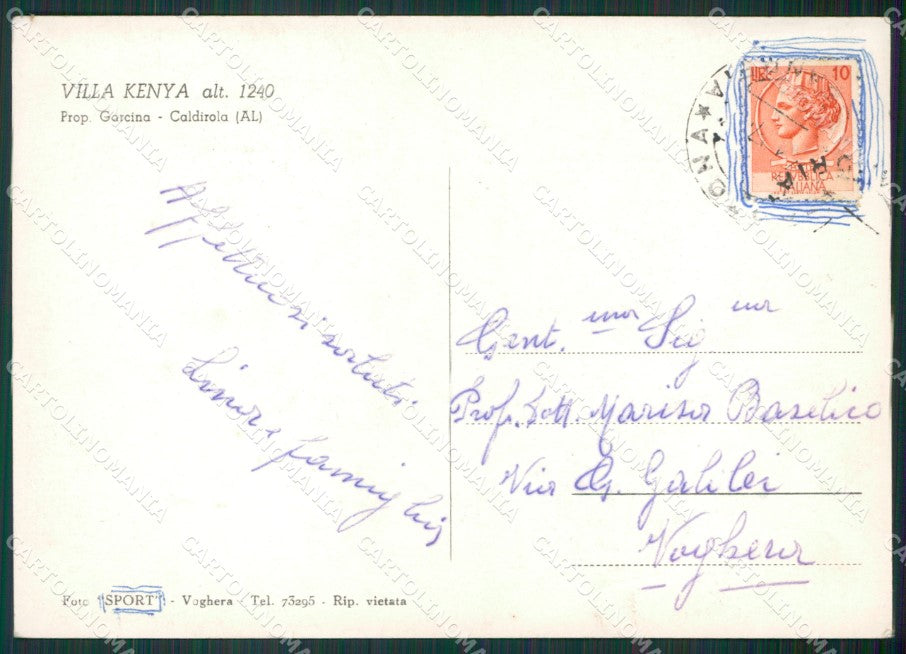 VILLA KENYA alt. 1240
Prop. Garcina - Caldirola (AL)
LIRE 10
REPUBBLICA
ITALIANA
Affettuosi saluti
e famiglia
Gent.ma Sig.na
Prof. Dott. Marisa Basilico
Via G. Galilei
Voghera
Foto "SPORT" - Voghera - Tel. 73295 - Rip. vietata
CARTOLINOMANIA